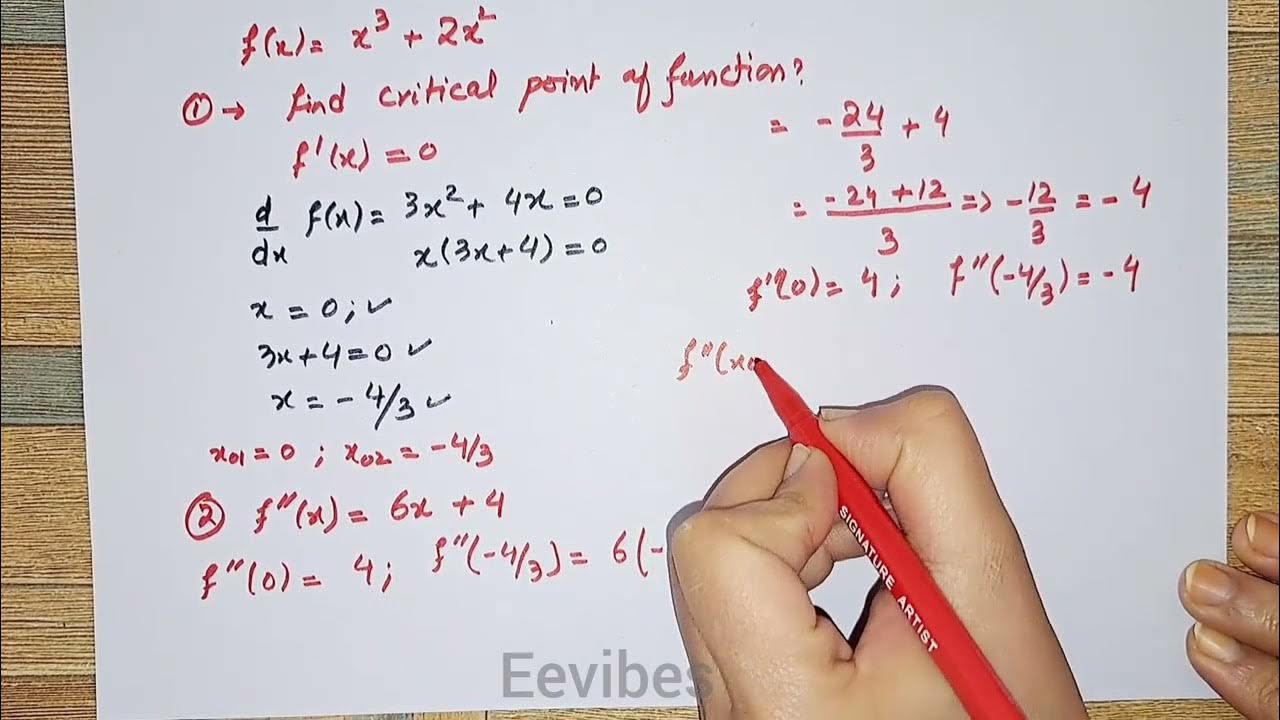 f(x) = x³ + 2x²
① → find critical point of function?
f'(x) = 0
d/dx f(x) = 3x² + 4x = 0
x(3x+4) = 0
x = 0; ✓
3x+4 = 0 ✓
x = -4/3 ✓
x₀₁ = 0 ; x₀₂ = -4/3
② f''(x) = 6x + 4
f''(0) = 4; f''(-4/3) = 6(-
= -24/3 + 4
= (-24+12)/3 => -12/3 = -4
f''(0) = 4 ; f''(-4/3) = -4
f''(x₀
SIGNATURE ARTIST
Eevibes